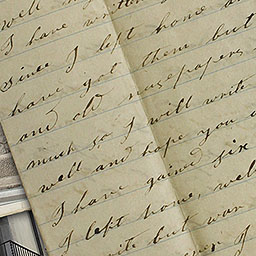 well
I have written
Since I left home a
have got them but
and old newspapers
much so I will write
well and hope you a
I have gained six
I left home, wel
write but war
I